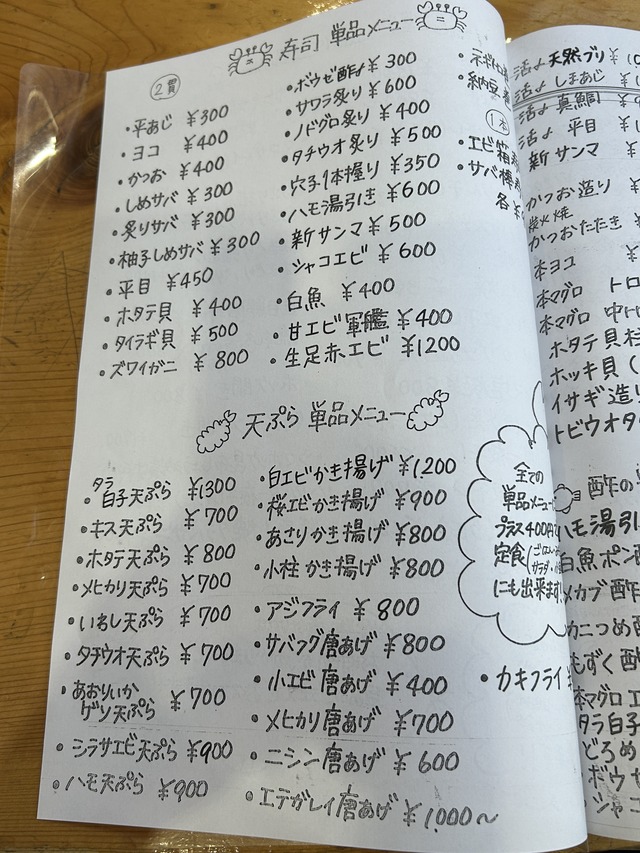 寿司 単品メニュー
2貫
・平あじ ¥300
・ヨコ ¥400
・かつお ¥400
・しめサバ ¥300
・炙りサバ ¥300
・柚子しめサバ ¥300
・平目 ¥450
・ホタテ貝 ¥400
・タイラギ貝 ¥500
・ズワイガニ ¥800
・ボウゼ酢〆 ¥300
・サワラ炙り ¥600
・ノドグロ炙り ¥400
・タチウオ炙り ¥500
・穴子1本握り ¥350
・ハモ湯引き ¥600
・新サンマ ¥500
・シャコエビ ¥600
・白魚 ¥400
・甘エビ軍艦 ¥400
・生足赤エビ ¥1200
・納豆
1本
・エビ箱
・サバ棒
各
天ぷら 単品メニュー
・タラ白子天ぷら ¥1300
・キス天ぷら ¥700
・ホタテ天ぷら ¥800
・メヒカリ天ぷら ¥700
・いわし天ぷら ¥700
・タチウオ天ぷら ¥700
・あおりいか
ゲソ天ぷら ¥700
・シラサエビ天ぷら ¥900
・ハモ天ぷら ¥900
・白エビかき揚げ ¥1,200
・桜エビかき揚げ ¥900
・あさりかき揚げ ¥800
・小柱かき揚げ ¥800
・アジフライ ¥800
・サバフグ唐あげ ¥800
・小エビ唐あげ ¥400
・メヒカリ唐あげ ¥700
・ニシン唐あげ ¥600
・エテガレイ唐あげ ¥1,000〜
全ての
単品メニュー
プラス400円で
定食
にも出来ます
・カキフライ
活〆天然ブリ
活〆しまあじ
活〆真鯛
活〆平目
新サンマ
かつお造り
炭火焼
かつおたたき
本ヨコ
本マグロ トロ
本マグロ 中
ホタテ貝
ホッキ貝
イサギ造
トビウオ
酢の
ハモ湯引
白魚ポン
メカブ酢
カニつめ
もずく酢
本マグロ
タラ白子
どろめ
ボウゼ
シャコ